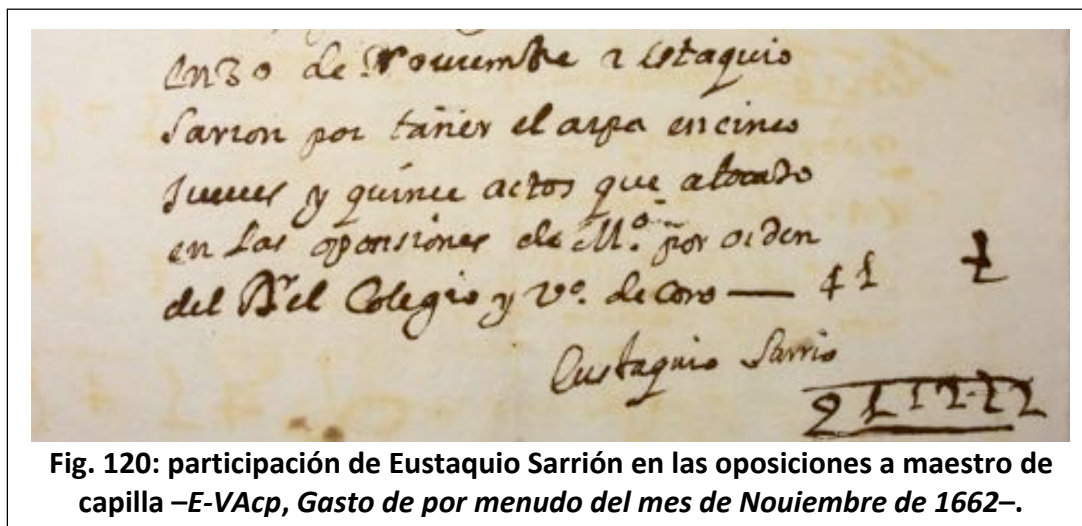 en 30 de Nouiembre a estaquio
Sarrion por tañer el arpa en cinco
Jueues y quince actos que a tocado
en las oponsiones de Mº. por orden
del el Colegio y Vº. de Coro — 4 £
Eustaquio Sarrio
Fig. 120: participación de Eustaquio Sarrión en las oposiciones a maestro de
capilla –E-VAcp, Gasto de por menudo del mes de Nouiembre de 1662–.